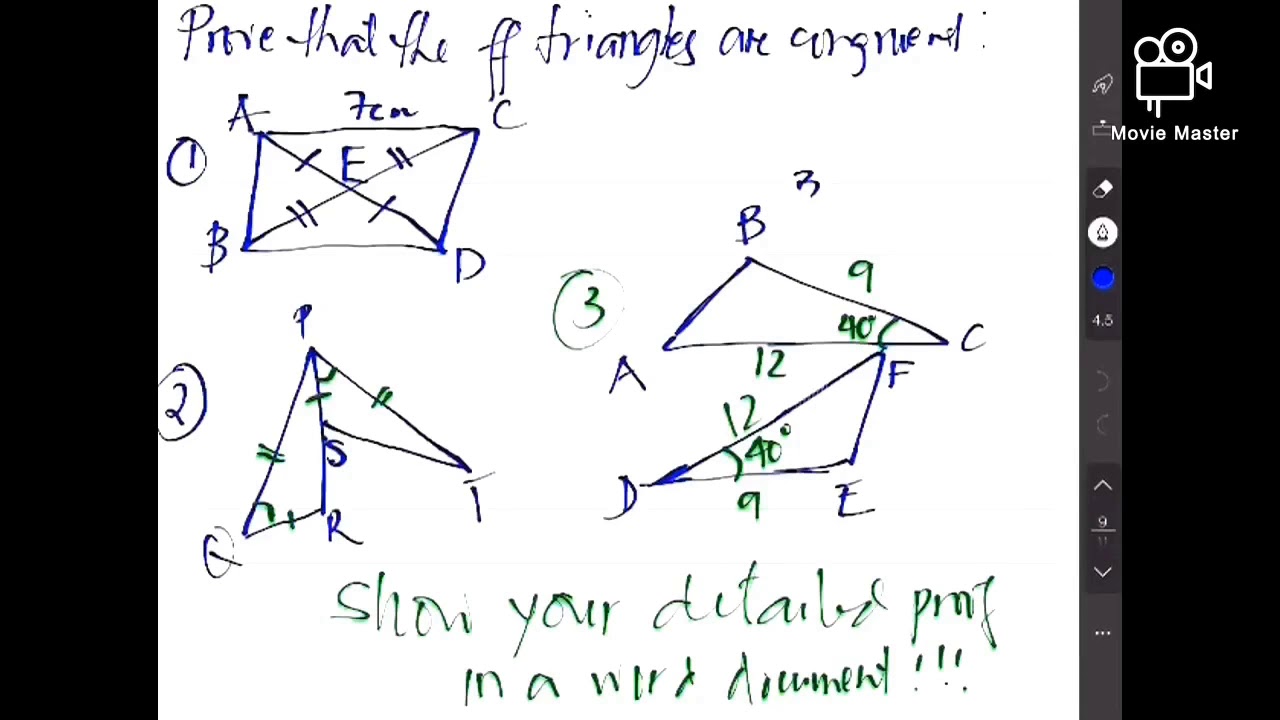 Prove that the ff triangles are congruent:
Movie Master
① A 7cm C
E
B D
3
B
③ 9
40°
A 12 C
F
② P
12
40°
S
D 9 E
Q R T
4.5
9
11
Show your detailed proof
in a word document!!!
...